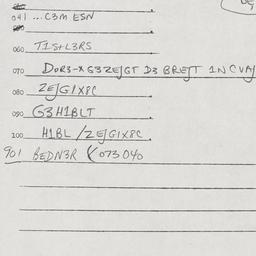 041 ...C3M ESN
060 T1S+L3RS
070 DOR3-X G3ZEJGT D3 BREJT 1N CVAJ
080 ZEJG1X8C
090 G3H1BLT
100 H1BL / ZEJG1X8C
901 BEDN3R 073040